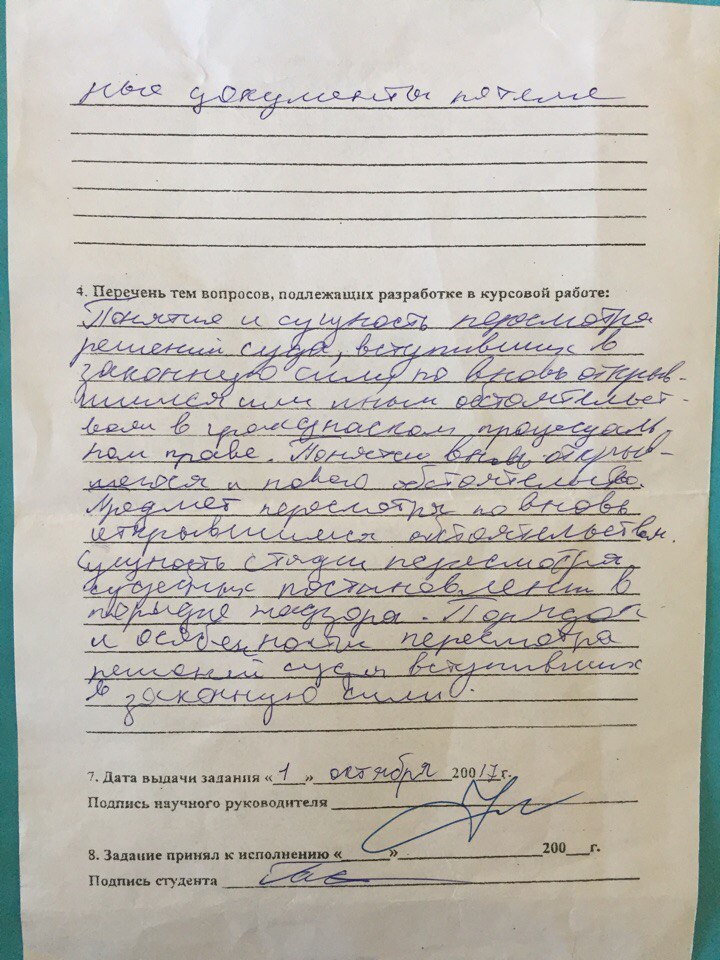 ные документы по теме
4. Перечень тем вопросов, подлежащих разработке в курсовой работе:
Понятие и сущность пересмотра
решений суда, вступивших в
законную силу по вновь открыв-
шимся или иным обстоятельст-
вам в гражданском процессуаль-
ном праве. Понятие вновь открыв-
шегося и нового обстоятельства.
Предмет пересмотра по вновь
открывшимся обстоятельствам.
Сущность стадии пересмотра
судебных постановлений в
порядке надзора. Порядок
и особенности пересмотра
решений суда вступивших
в законную силу.
7. Дата выдачи задания «1» октября 20017г.
Подпись научного руководителя
8. Задание принял к исполнению «___»___200__г.
Подпись студента